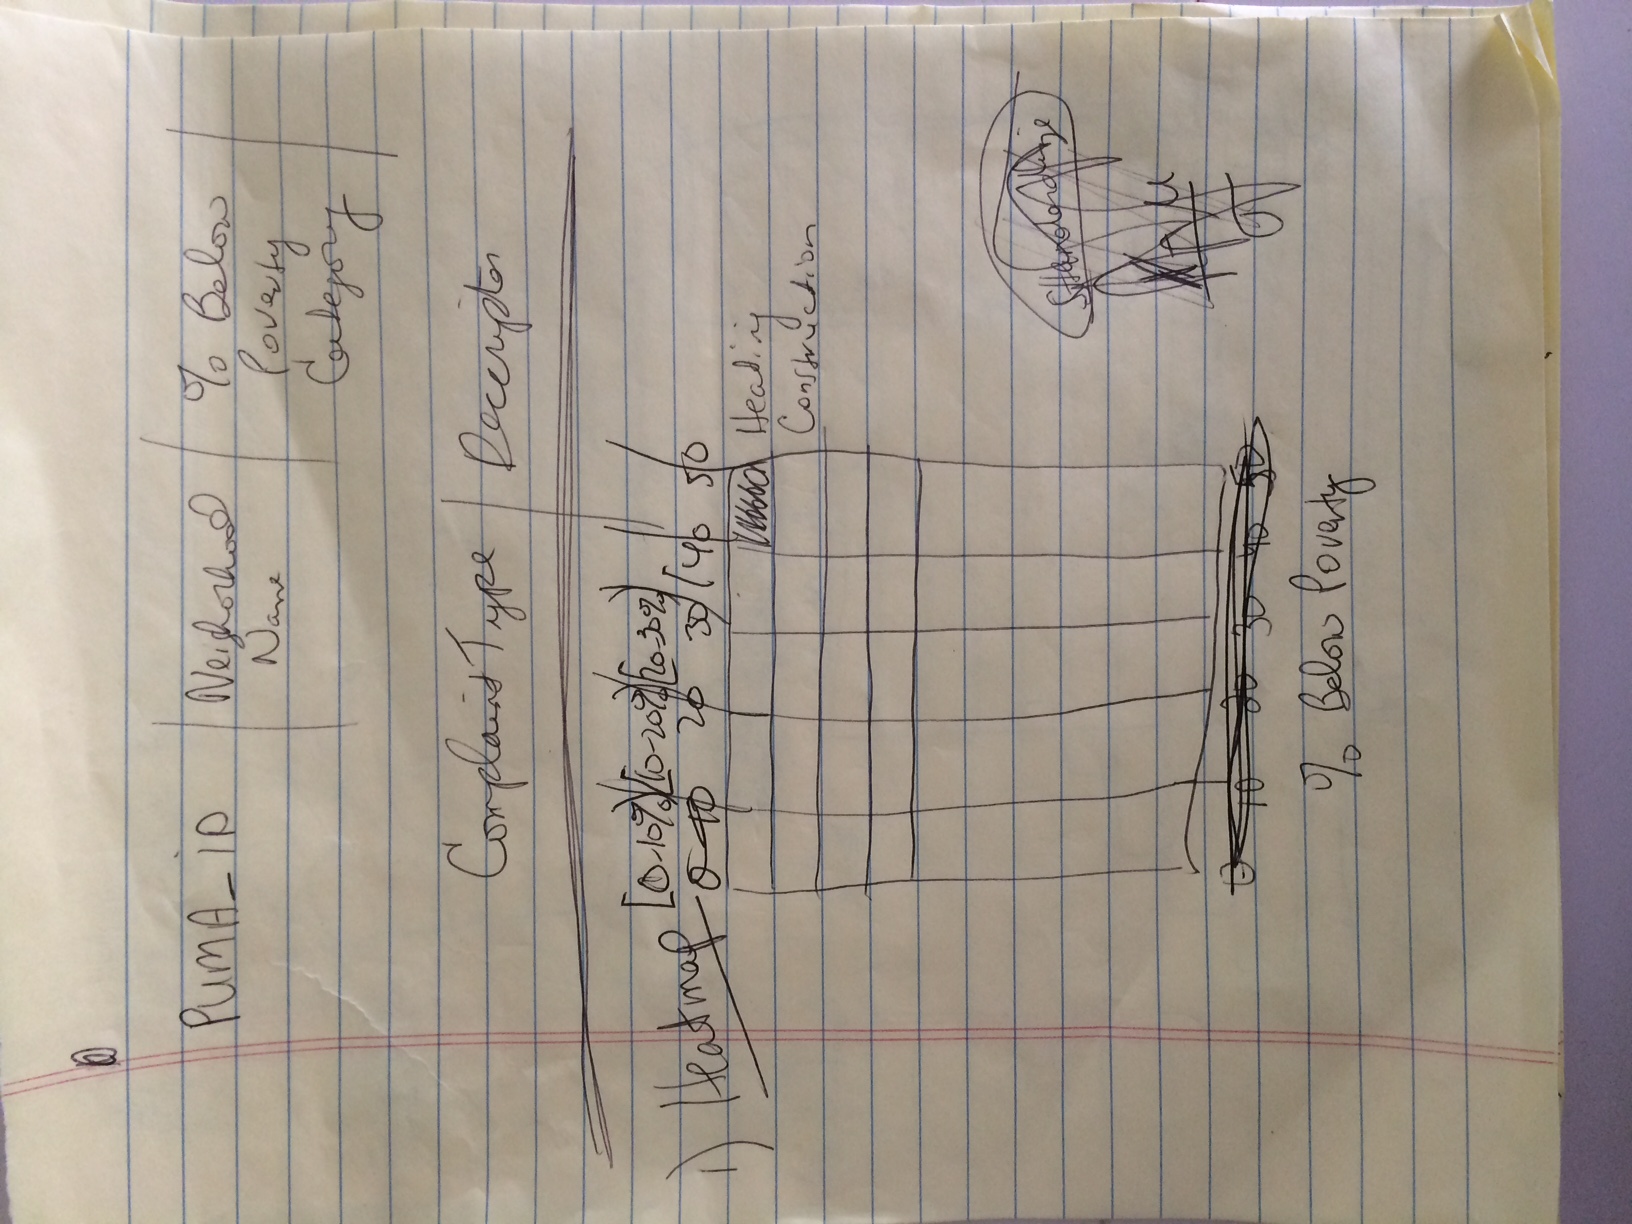 PUMA_iD Neighorhood % Below
Name Poverty
Category
Complaint Type Descriptor
[0-10%) [10-20%) [20-30%)
1) Heatmap 0 10 20 30 40 50
Heading
Construction
Standardize
X - μ
σ
0 10 20 30 40 50
% Below Poverty